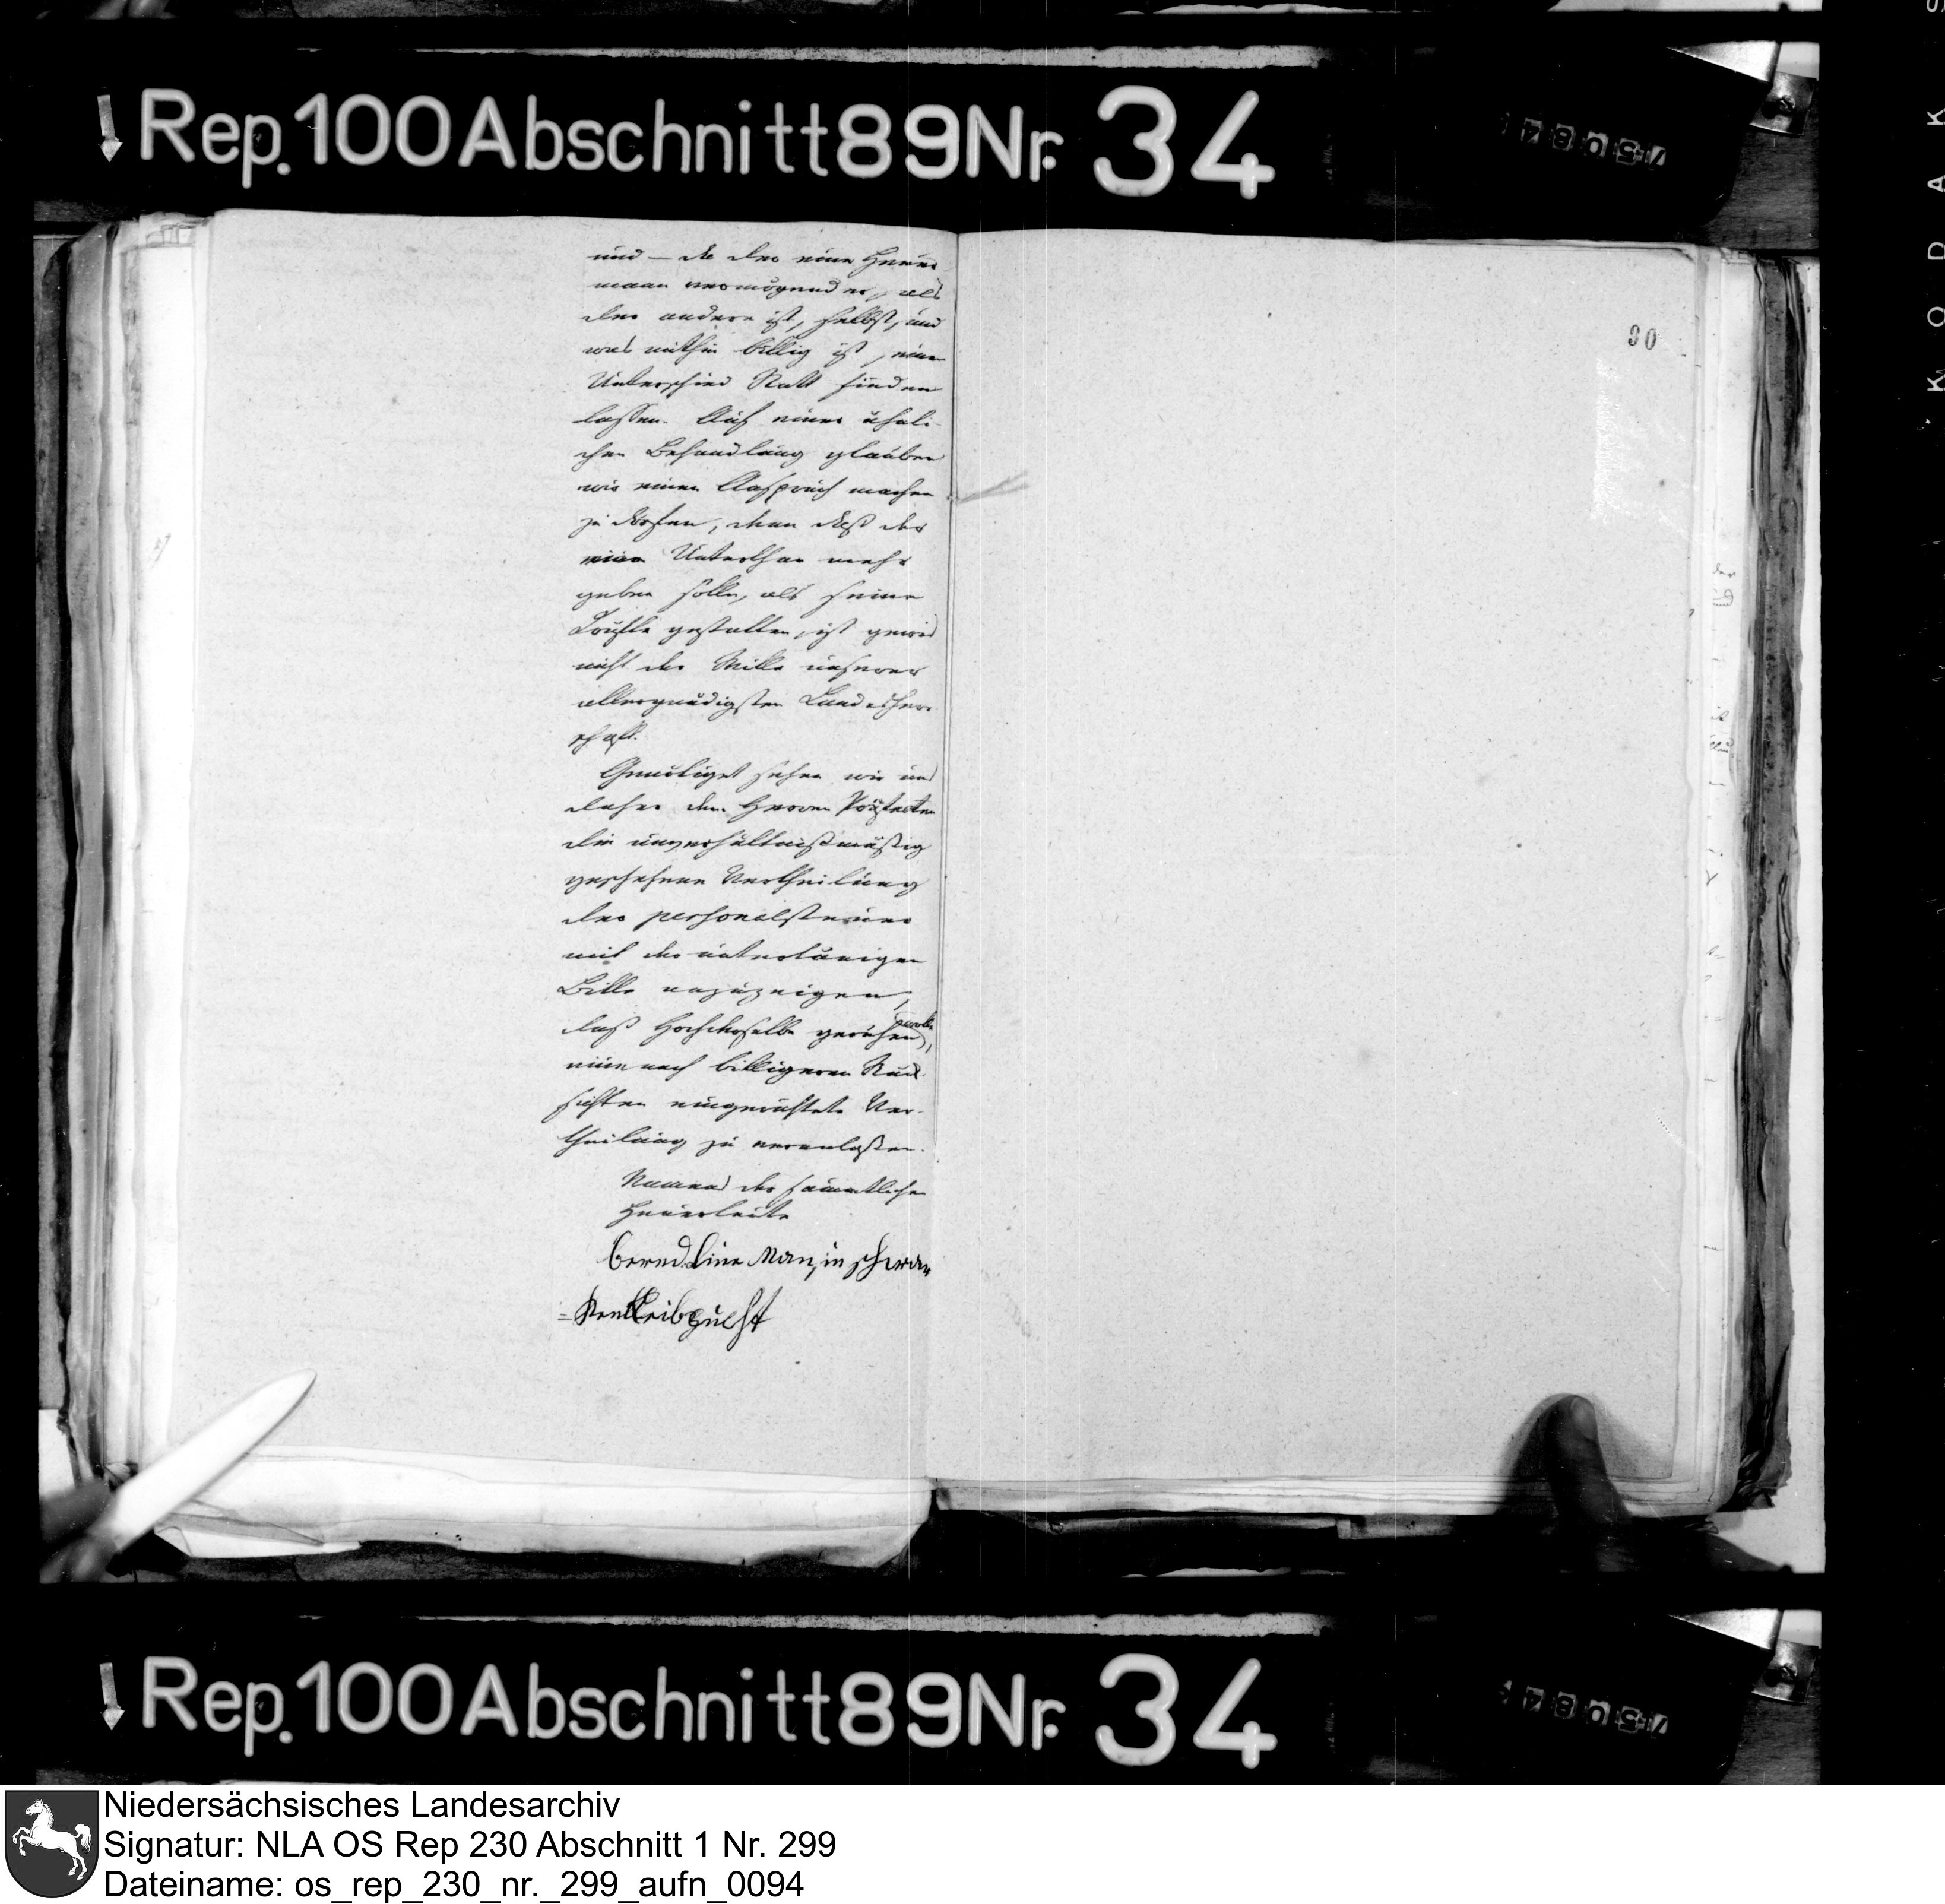 Rep. 100 Abschnitt 89 Nr. 34
und – da der eine Heuer
mann vermögender, als
der andere ist, selbst, und
was mithin billig ist, einen
Unterschied Statt finden
lassen. Auf einer ähnli-
chen Behandlung glauben
wir einen Anspruch machen
zu dörfen, denn daß der
eine Unterthan mehr
geben solle, als seine
Kräfte gestatten, ist gewis
nicht der Wille unserer
allergnädigsten Landesherr-
schaft.
Genötiget sehen wir uns
daher dem Herrn
die unverhältnißmäßig
geschehene Vertheilung
der personalsteuer
mit der untertänigen
Bitte anzuzeigen,
daß Hochdieselbe geruhen wolle,
eine nach billigeren Rück-
sichten eingerichtete Ver-
theilung zu veranlaßen.
Namens der sämmtlichen
Heuerleute
Bernd in
Leibzucht
30
KODAK
Rep. 100 Abschnitt 89 Nr. 34
Niedersächsisches Landesarchiv
Signatur: NLA OS Rep 230 Abschnitt 1 Nr. 299
Dateiname: os_rep_230_nr._299_aufn_0094